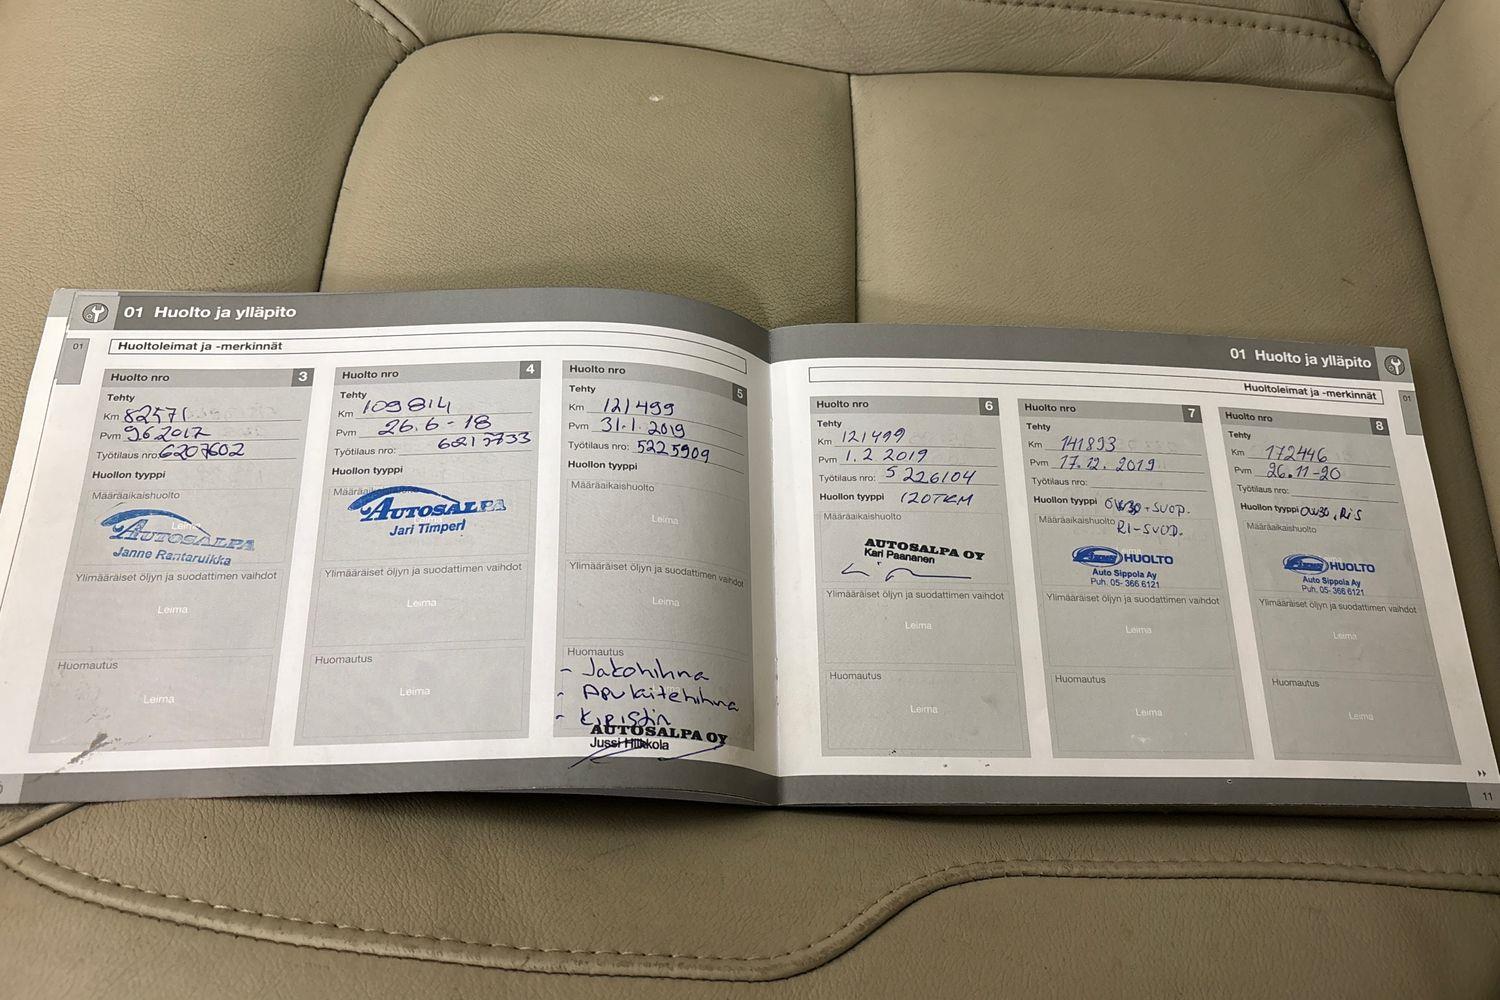 01 Huolto ja ylläpito
01
Huoltoleimat ja -merkinnät
Huolto nro 3
Tehty
Km 82571
Pvm 9.6 2017
Työtilaus nro: 6207602
Huollon tyyppi
Määräaikaishuolto
Leima
AUTOSALPA
Janne Rantaruikka
Ylimääräiset öljyn ja suodattimen vaihdot
Leima
Huomautus
Leima
Huolto nro 4
Tehty
Km 109814
Pvm 26.6-18
Työtilaus nro:
Huollon tyyppi
AUTOSALPA
Jari Timperi
Ylimääräiset öljyn ja suodattimen vaihdot
Leima
Huomautus
Leima
Huolto nro 5
Tehty
Km 121499
Pvm 31.1.2019
Työtilaus nro: 5225909
Huollon tyyppi
Määräaikaishuolto
Leima
Ylimääräiset öljyn ja suodattimen vaihdot
Leima
Huomautus
- Jakohihna
- Apulaitehihna
- Kiristin
AUTOSALPA OY
Jussi Hilkkola
01 Huolto ja ylläpito
Huoltoleimat ja -merkinnät
01
Huolto nro 6
Tehty
Km 121499
Pvm 1.2 2019
Työtilaus nro: 5226104
Huollon tyyppi 120TKM
Määräaikaishuolto
AUTOSALPA OY
Kari Paananen
Ylimääräiset öljyn ja suodattimen vaihdot
Leima
Huomautus
Leima
Huolto nro 7
Tehty
Km 141893
Pvm 17.12.2019
Työtilaus nro:
Huollon tyyppi 0W30 + SUOD.
Määräaikaishuolto RI-SUOD.
HUOLTO
Auto Sippola Ay
Puh. 05- 366 6121
Ylimääräiset öljyn ja suodattimen vaihdot
Leima
Huomautus
Leima
Huolto nro 8
Tehty
Km 172446
Pvm 26.11-20
Työtilaus nro:
Huollon tyyppi 0W30, RiS
Määräaikaishuolto
HUOLTO
Auto Sippola Ay
Puh. 05- 366 6121
Ylimääräiset öljyn ja suodattimen vaihdot
Leima
Huomautus
Leima
11